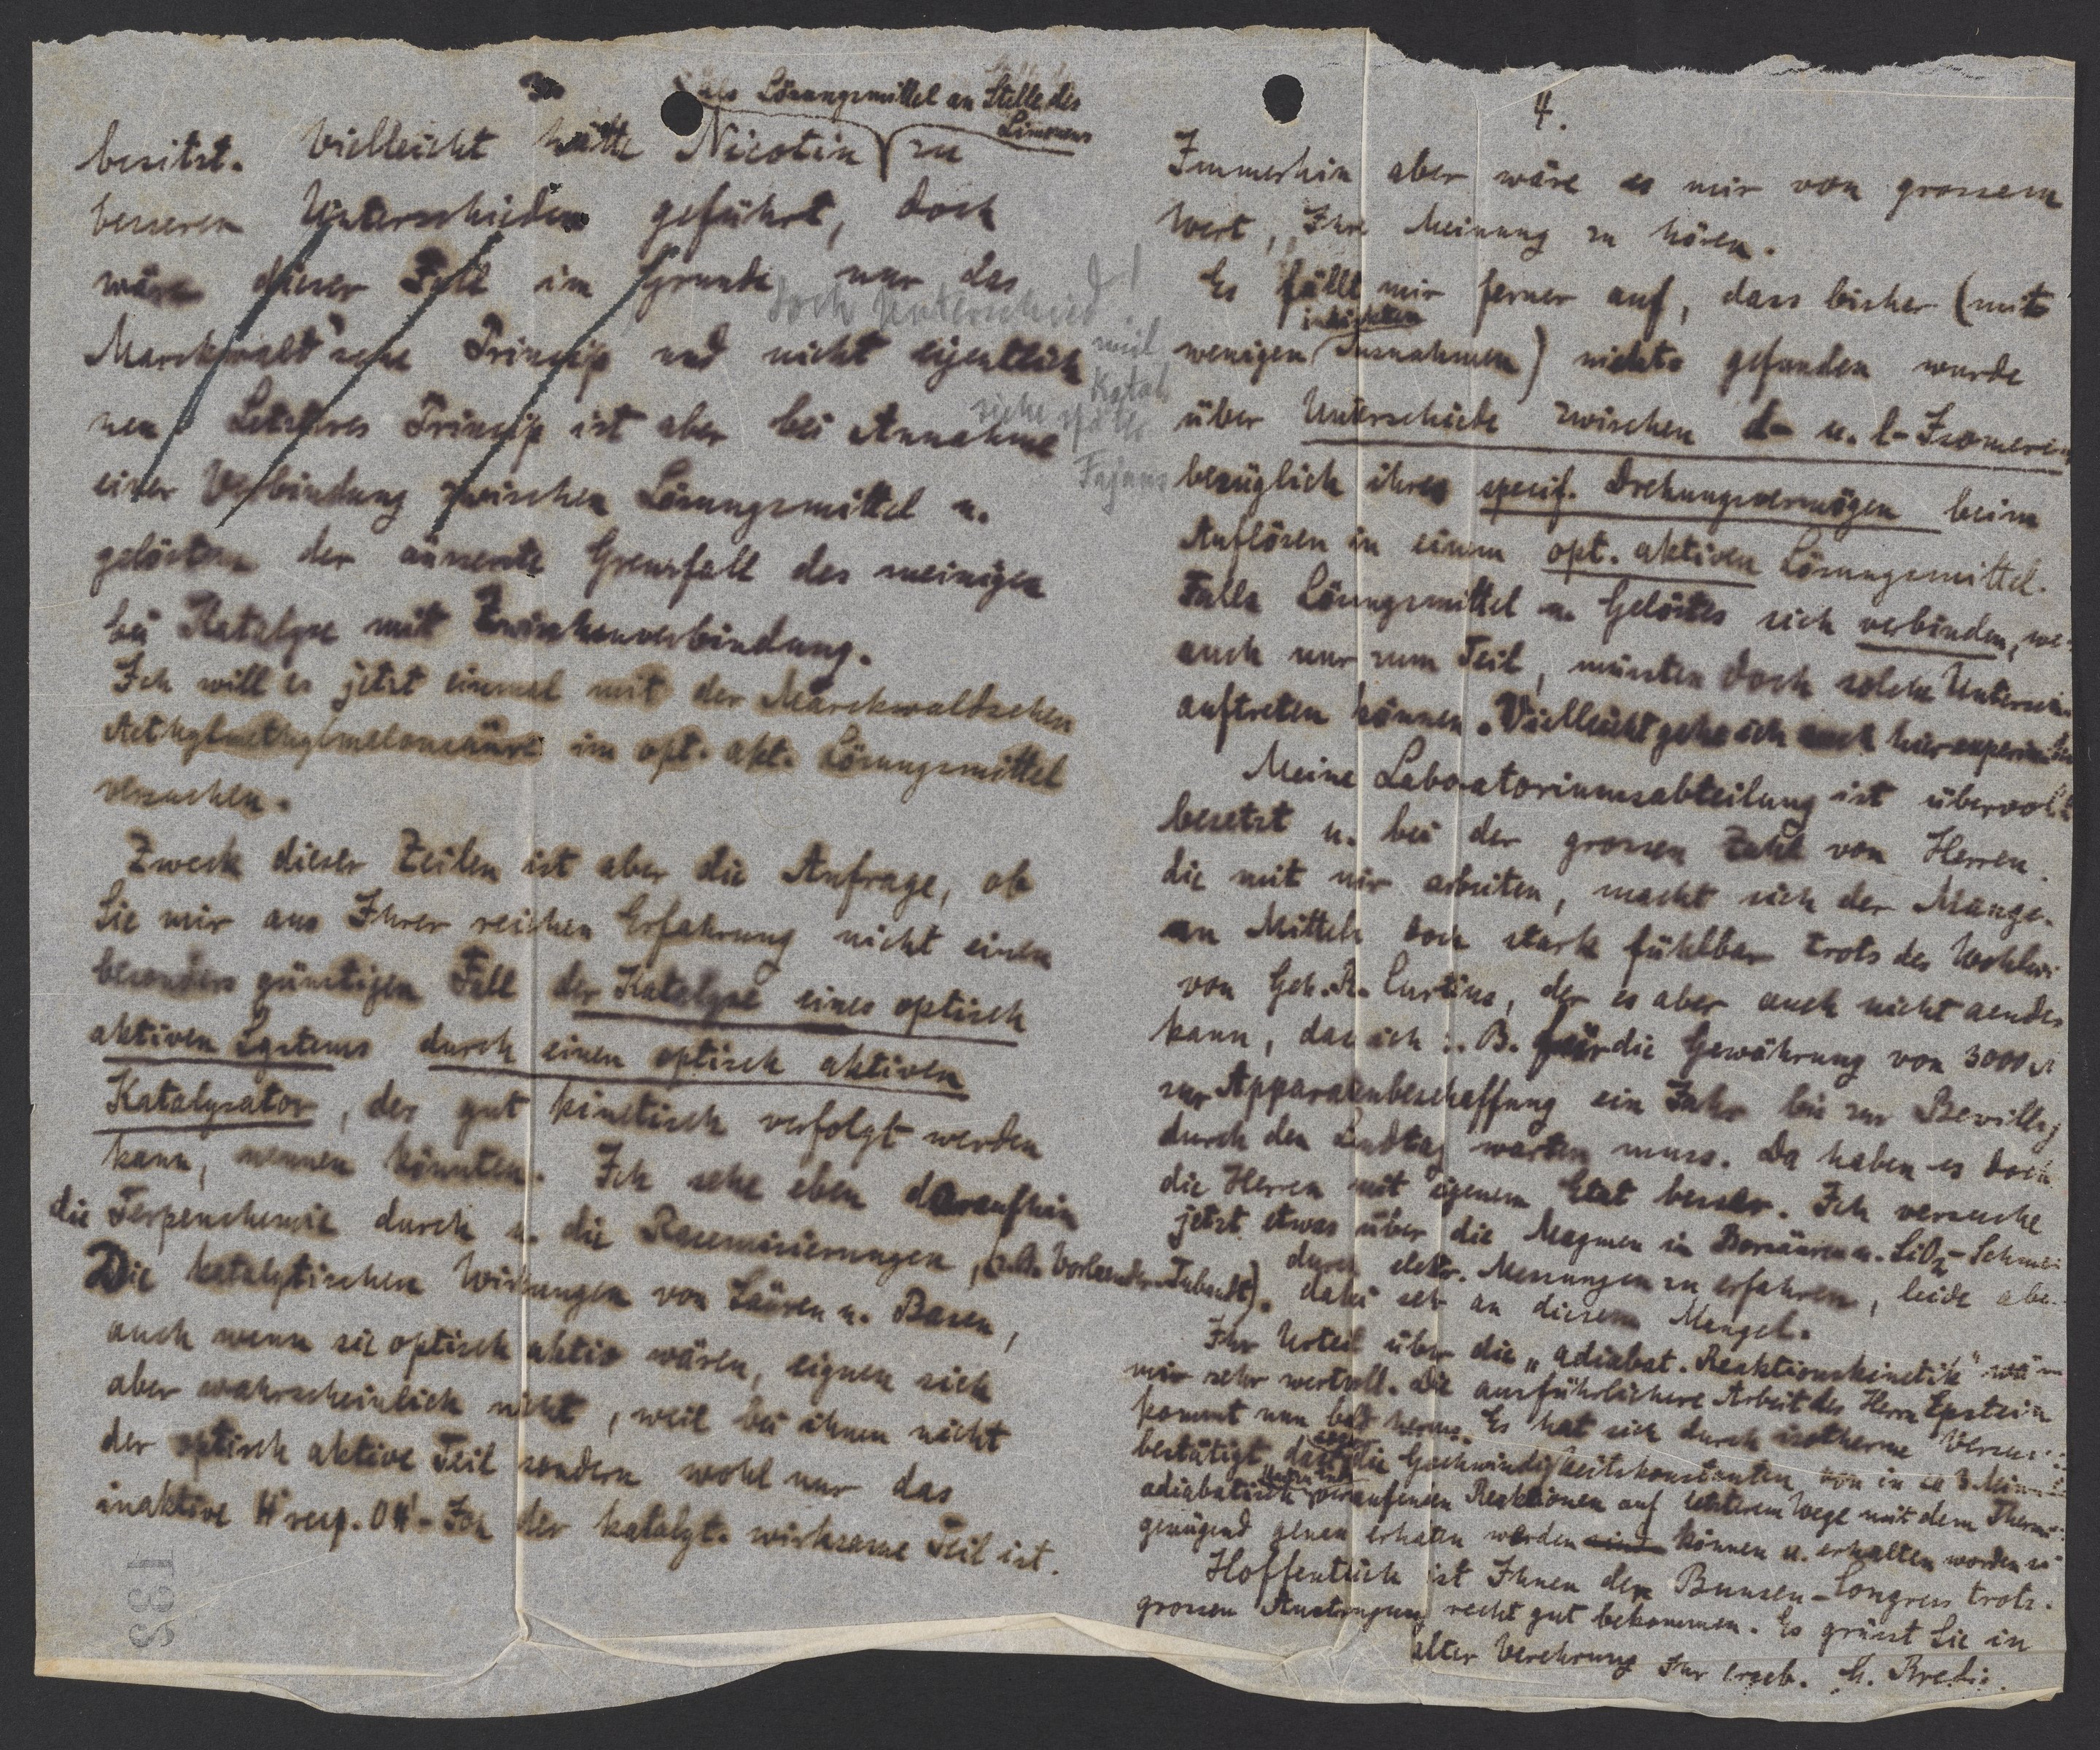 3.
als Lösungsmittel an Stelle des
Limonens
besitzt. Vielleicht hätte Nicotin zu
besseren Unterschieden geführt, doch
wäre dieser Fall im Grunde nur das
Marckwald'sche Prinzip und nicht eigentlich
neu. Letzteres Prinzip ist aber bei Annahme
einer Verbindung zwischen Lösungsmittel u.
gelöstem der äusserste Grenzfall des meinigen
bei Katalyse mit Zwischenverbindung.
doch Unterschied
weil
Katal.
siehe später
Fajans
Ich will es jetzt einmal mit der Marckwaldschen
Aethylmethylmalonsäure im opt. akt. Lösungsmittel
versuchen.
Zweck dieser Zeilen ist aber die Anfrage, ob
Sie mir aus Ihrer reichen Erfahrung nicht einen
besonders günstigen Fall der Katalyse eines optisch
aktiven Systems durch einen optisch aktiven
Katalysator, der gut kinetisch verfolgt werden
kann, nennen könnten. Ich sehe eben daraufhin
die Terpenchemie durch u. die Racemisierungen,
Die katalytischen Wirkungen von Säuren u. Basen,
auch wenn sie optisch aktiv wären, eignen sich
aber wahrscheinlich nicht, weil bei ihnen nicht
der optisch aktive Teil sondern wohl nur das
inaktive H˙ resp. OH'-Ion der katalyt. wirksame Teil ist.
4.
Immerhin aber wäre es mir von grossem
Wert, Ihre Meinung zu hören.
Es fällt mir ferner auf, dass bisher (mit
wenigen Ausnahmen) nichts gefunden wurde
über Unterschiede zwischen d- u. l-Isomeren
bezüglich ihres specif. Drehungsvermögen beim
Auflösen in einem opt. aktiven Lösungsmittel.
Falls Lösungsmittel u. Gelöstes sich verbinden,
auch nur zum Teil, müssten doch solche
auftreten können. Vielleicht gehe ich auch hier
Meine Laboratoriumsabteilung ist übervoll
besetzt u. bei der grossen Zahl von Herren
die mit mir arbeiten, macht sich der
an Mitteln doch stark fühlbar trotz des
von Geh. R. Curtius, der es aber auch nicht aendern
kann, das ich z. B. für die Gewährung von 3000 M
zur Apparatenbeschaffung ein Jahr bis zur
durch den Landtag warten muss. Da haben es doch
die Herren mit eigenem Etat besser. Ich versuche
jetzt etwas über die Magmen in Borsäuren u. SiO2-
durch elektr. Messungen zu erfahren, leide aber
dabei sehr an diesem Mangel.
Ihr Urteil über die „adiabat. Reaktionskinetik" wäre
mir sehr wertvoll. Die ausführlichere Arbeit des Herrn Epstein
kommt nun bald heraus. Es hat sich durch isotherme
bestätigt, dass sogar die Geschwindigkeitskonstanten von in ca 3 Min.
adiabatisch verlaufenden Reaktionen auf letzterem Wege mit dem
genügend genau erhalten werden können u. erhalten worden
Hoffentlich ist Ihnen der Bunsen-Congress trotz
grossen Anstrengung recht gut bekommen. Es grüsst Sie in
alter Verehrung Ihr ergeb. G. Bredig.